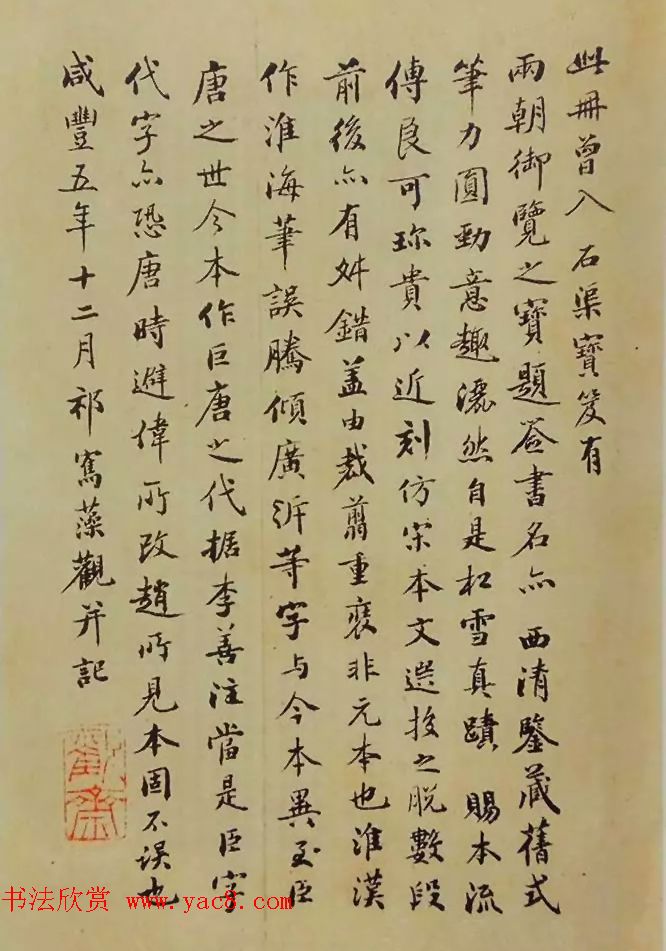 此冊曾入 石渠寶笈有
兩朝御覽之寶題簽書名亦 西清鑒藏舊式
筆力圓勁意趣灑然自是松雪真蹟 賜本流
傳良可珎貴以近刻仿宋本文選按之脫數段
前後亦有舛錯盖由裁翦重裝非元本也淮漢
作淮海華誤騰傾廣泝等字与今本異至臣
唐之世今本作巨唐之代据李善注當是臣字
代字亦恐唐時避偉所改趙所見本固不误也
咸豐五年十二月祁寯藻觀并記
书法欣赏 www.yac8.com